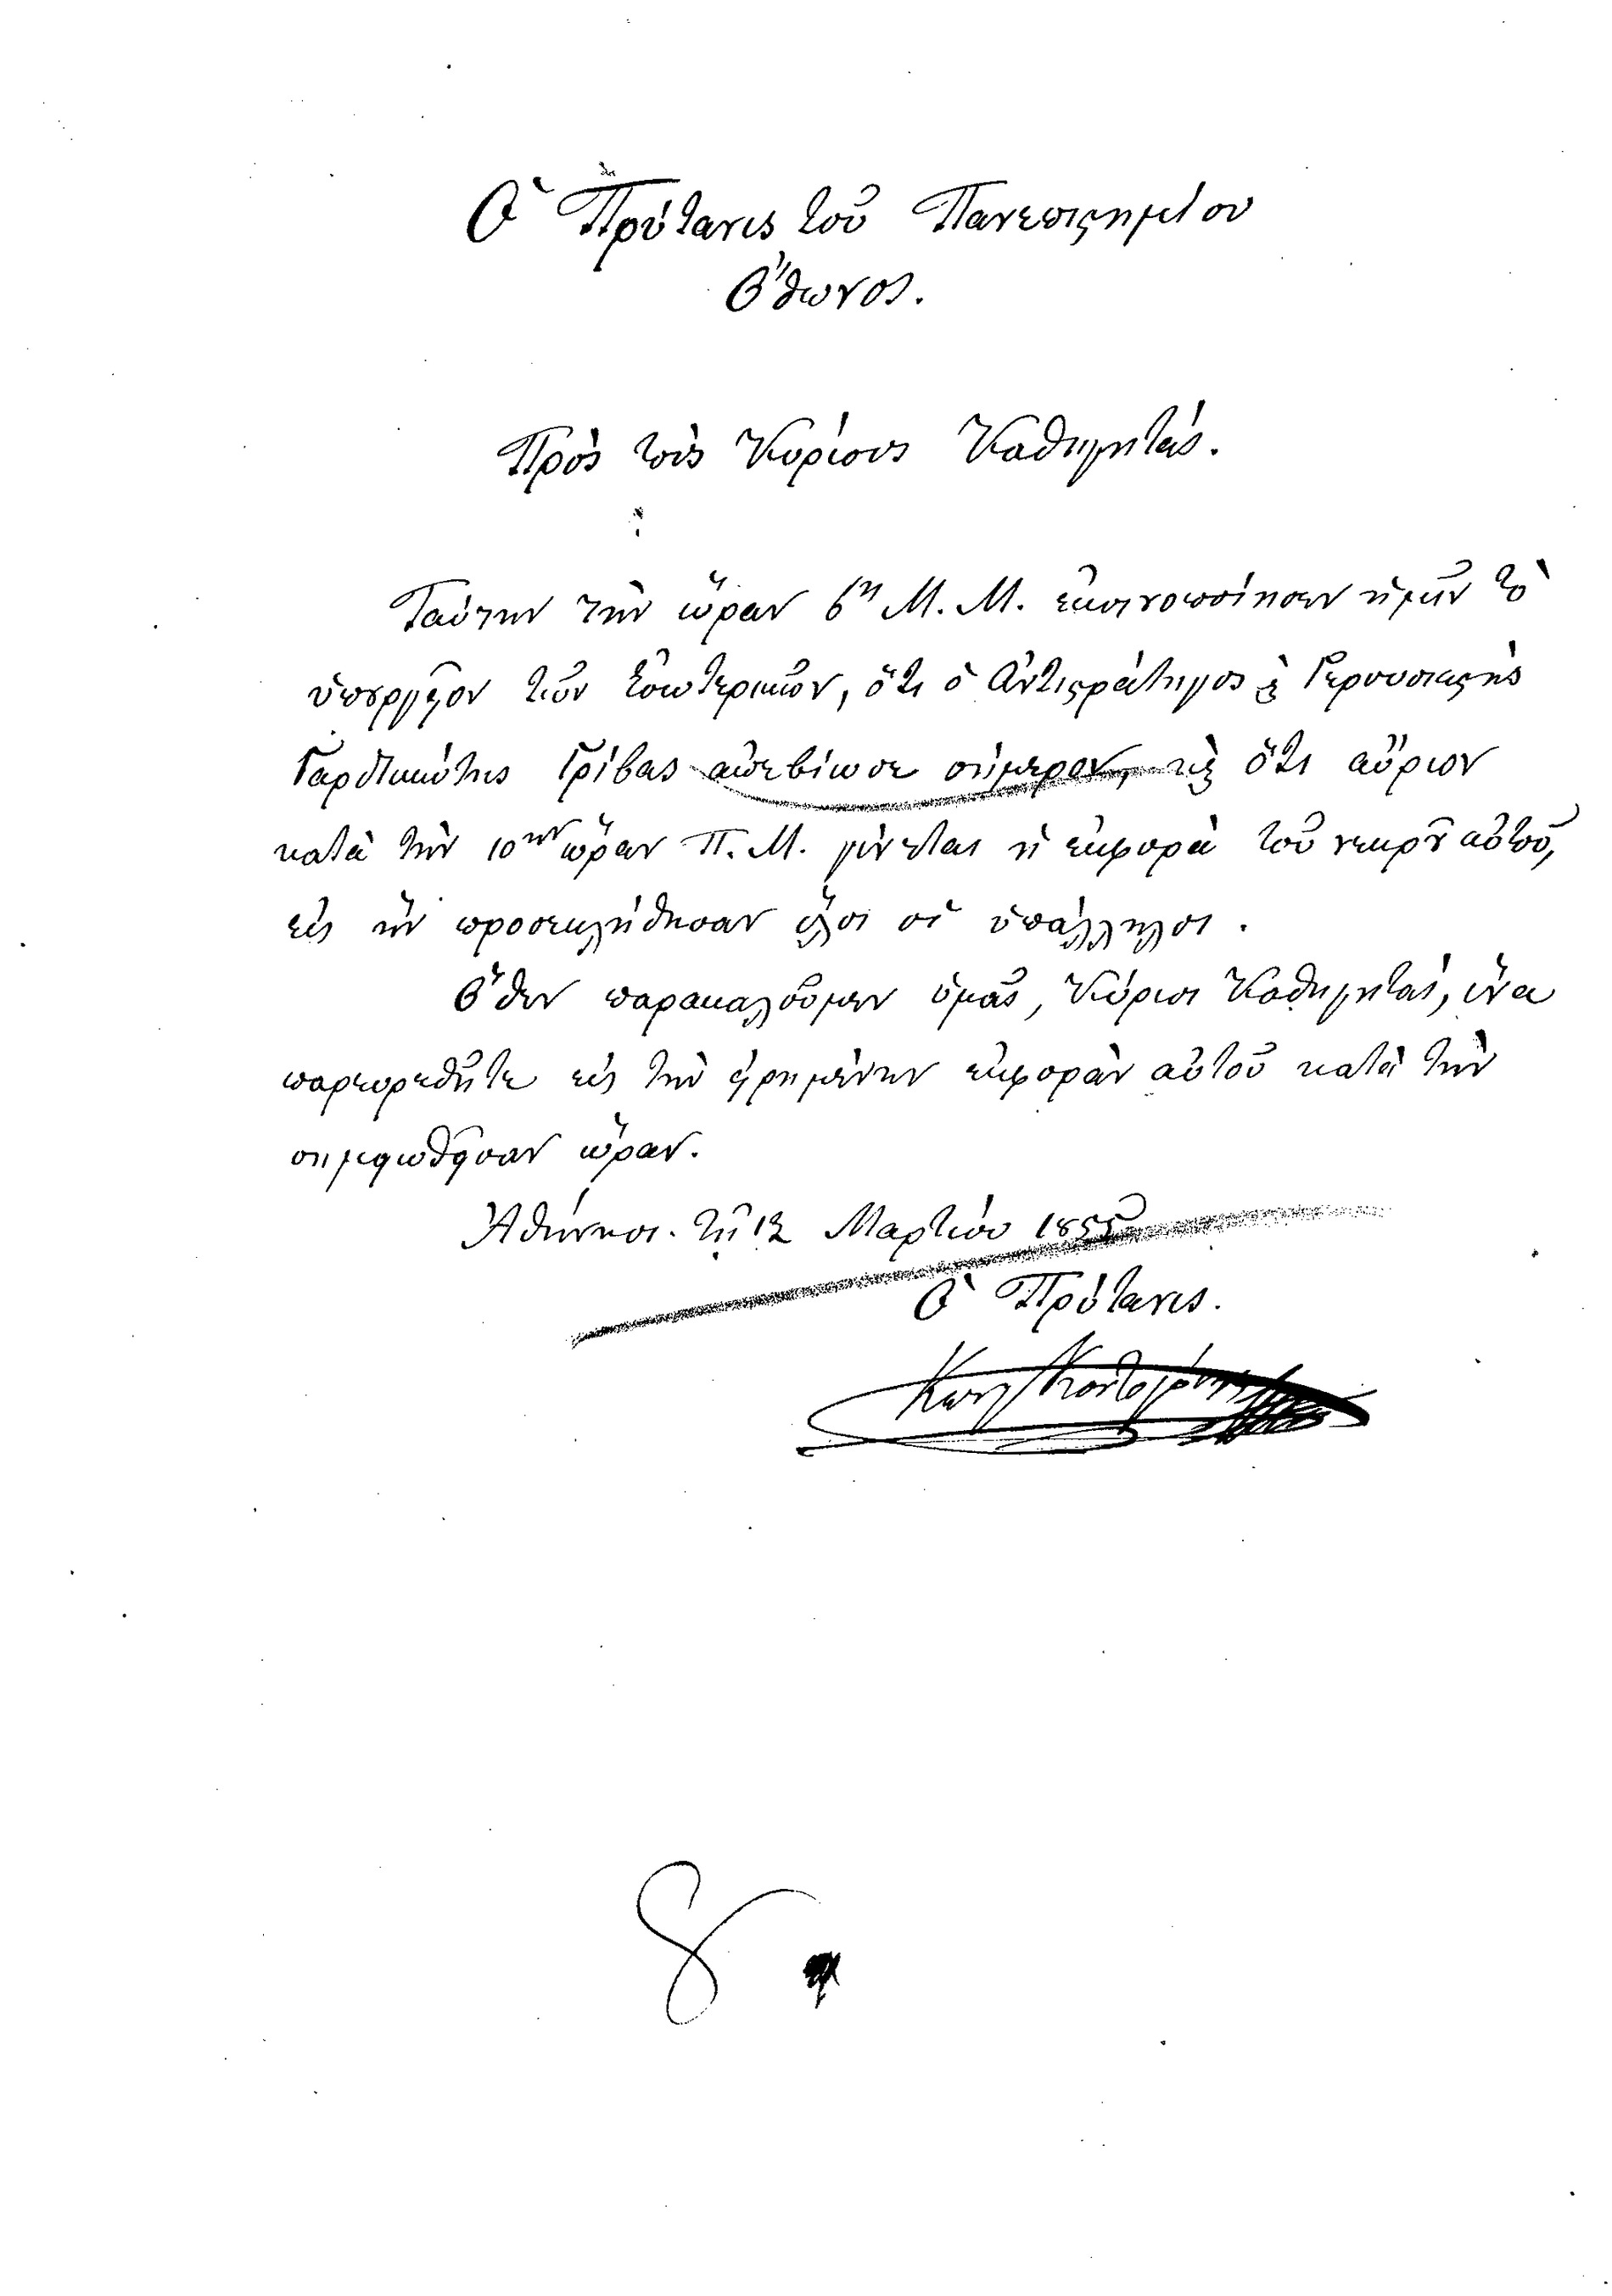 Ὁ Πρύτανις τοῦ Πανεπιϛημίου
Ὄθωνος.
Πρὸς τοὺς Κυρίους Καθηγητάς.
Ταύτην τὴν ὥραν 6η Μ. Μ. ἐκοινοποίησεν ἡμῖν τὸ
ὑπουργεῖον τῶν Ἐσωτερικῶν, ὅτι ὁ Ἀντιϛράτηγος ϗ Γερουσιαϛὴς
Γαρδικιώτης Γρίβας ἀπεβίωσε σήμερον, ϗ ὅτι αὔριον
κατὰ τὴν 10ην ὥραν Π. Μ. γίνεται ἡ ἐκφορὰ τοῦ νεκροῦ αὐτοῦ,
εἰς ἣν προσεκλήθησαν ὅλοι οἱ ὑπάλληλοι.
Ὅθεν παρακαλοῦμεν ὑμᾶς, Κύριοι Καθηγηταί, ἵνα
παρευρεθῆτε εἰς τὴν εἰρημένην ἐκφορὰν αὐτοῦ κατὰ τὴν
σημειωθεῖσαν ὥραν.
Ἀθήνησι. τῇ 12 Μαρτίου 1855
Ὁ Πρύτανις.